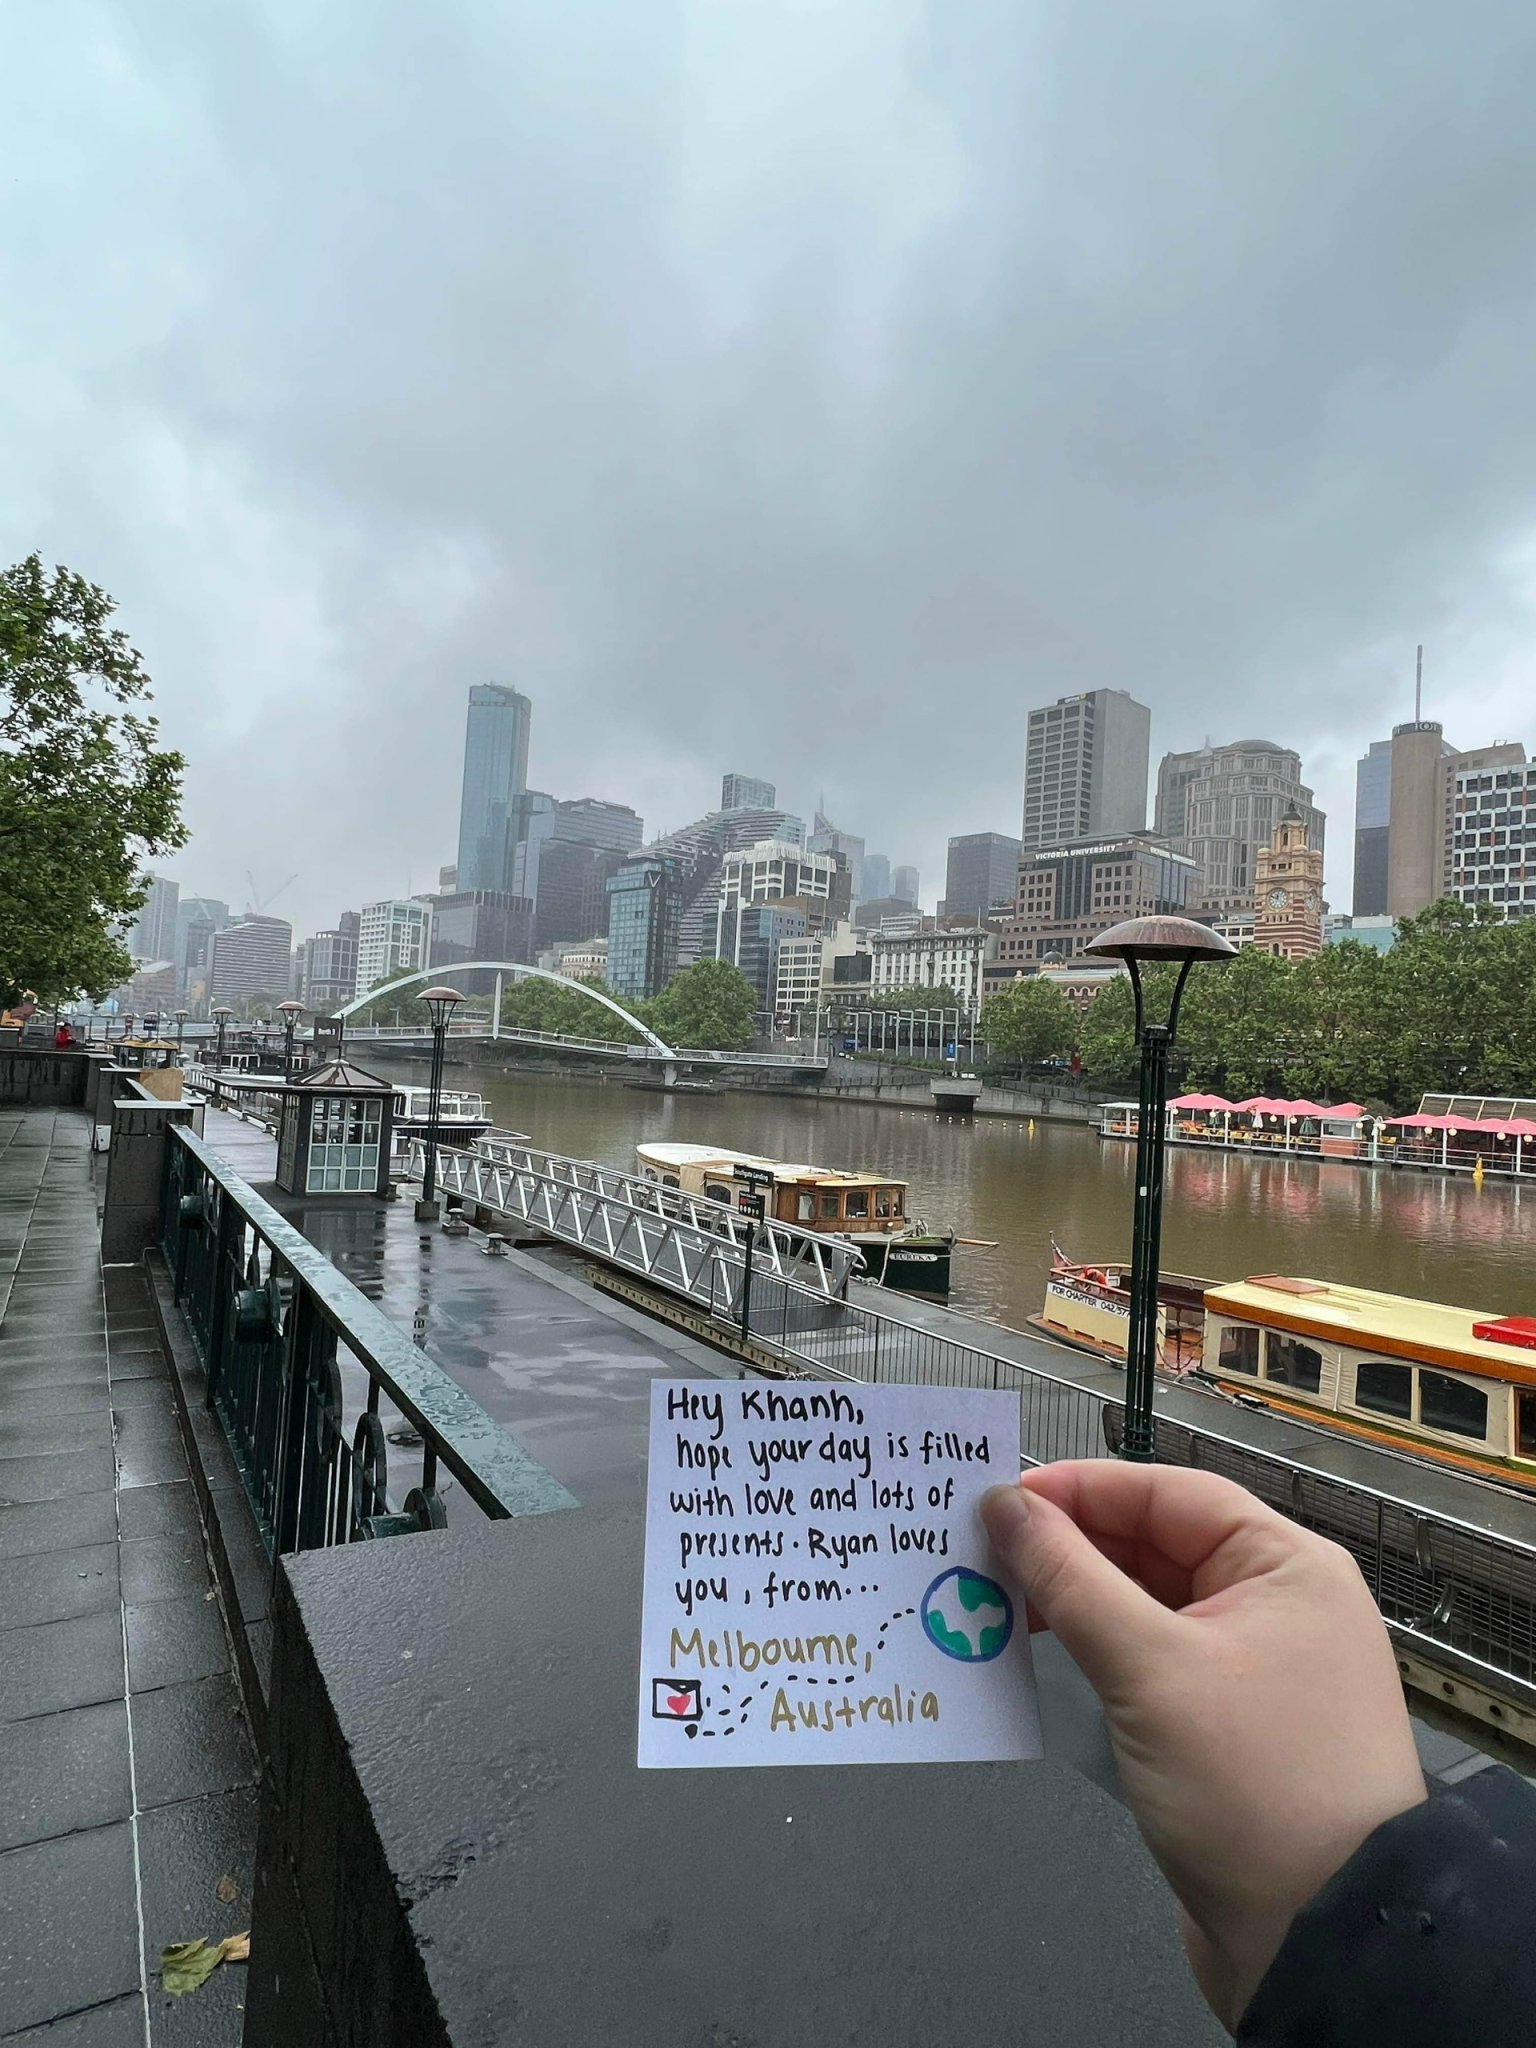 VICTORIA UNIVERSITY
Southgate Landing
EUREKA
FOR CHARTER
Hey Khanh,
hope your day is filled
with love and lots of
presents. Ryan loves
you, from...
Melbourne,
Australia